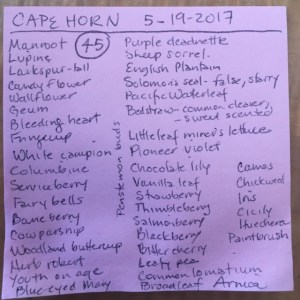 CAPE HORN 5-19-2017
45
Manroot
Lupine
Larkspur - tall
Candy flower
Wallflower
Geum
Bleeding heart
Fringecup
White campion
Columbine
Serviceberry
Fairy bells
Baneberry
Cow parsnip
Woodland buttercup
Herb robert
Youth on age
Blue-eyed Mary
Penstemon buds
Purple deadnettle
Sheep sorrel
English Plantain
Solomon's seal - false, starry
Pacific Waterleaf
Bedstraw - common cleaver,
- sweet scented
Littleleaf miner's lettuce
Pioneer violet
Chocolate lily
Vanilla leaf
Strawberry
Thimbleberry
Salmonberry
Blackberry
Bitter cherry
Leafy pea
Common lomatium
Broadleaf Arnica
Camas
Chickweed
Iris
Cicily
Huechera
Paintbrush